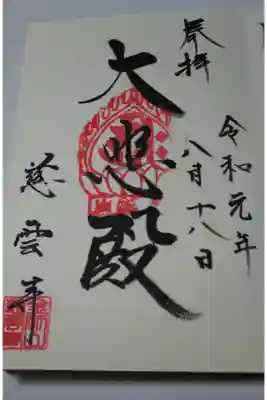 奉拝
令和元年
八月十八日
大悲殿
慈雲峯